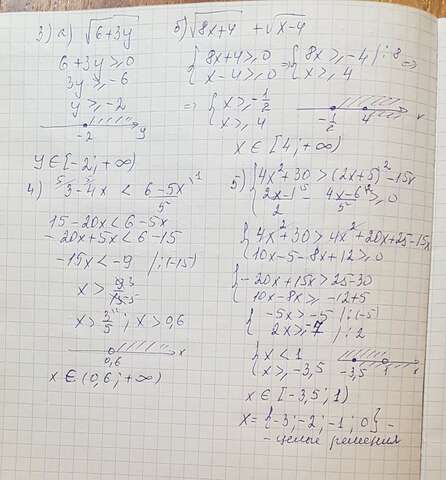 3) a) √6+3y
6+3y ≥ 0
3y ≥ -6
y ≥ -2
-2 y
y ∈ [-2; +∞)
б) √8x+4 + √x-4
{ 8x+4 ≥ 0 => { 8x ≥ -4 | : 8 =>
{ x-4 ≥ 0 { x ≥ 4
=> { x ≥ -1/2
{ x ≥ 4
-1/2 4 x
x ∈ [4; +∞)
4) 3-4x < 6-5x/5
15-20x < 6-5x
-20x+5x < 6-15
-15x < -9 | : (-15)
x > 9/15
x > 3/5 ; x > 0,6
0,6 x
x ∈ (0,6; +∞)
5) { 4x²+30 > (2x+5)²-15x
{ 2x-1/2 - 4x-6/5 ≥ 0
{ 4x²+30 > 4x²+20x+25-15x
{ 10x-5-8x+12 ≥ 0
{ -20x+15x > 25-30
{ 10x-8x ≥ -12+5
{ -5x > -5 | : (-5)
{ 2x ≥ -7 | : 2
{ x < 1
{ x ≥ -3,5
-3,5 1 x
x ∈ [-3,5; 1)
x = {-3; -2; -1; 0} -
- целые решения